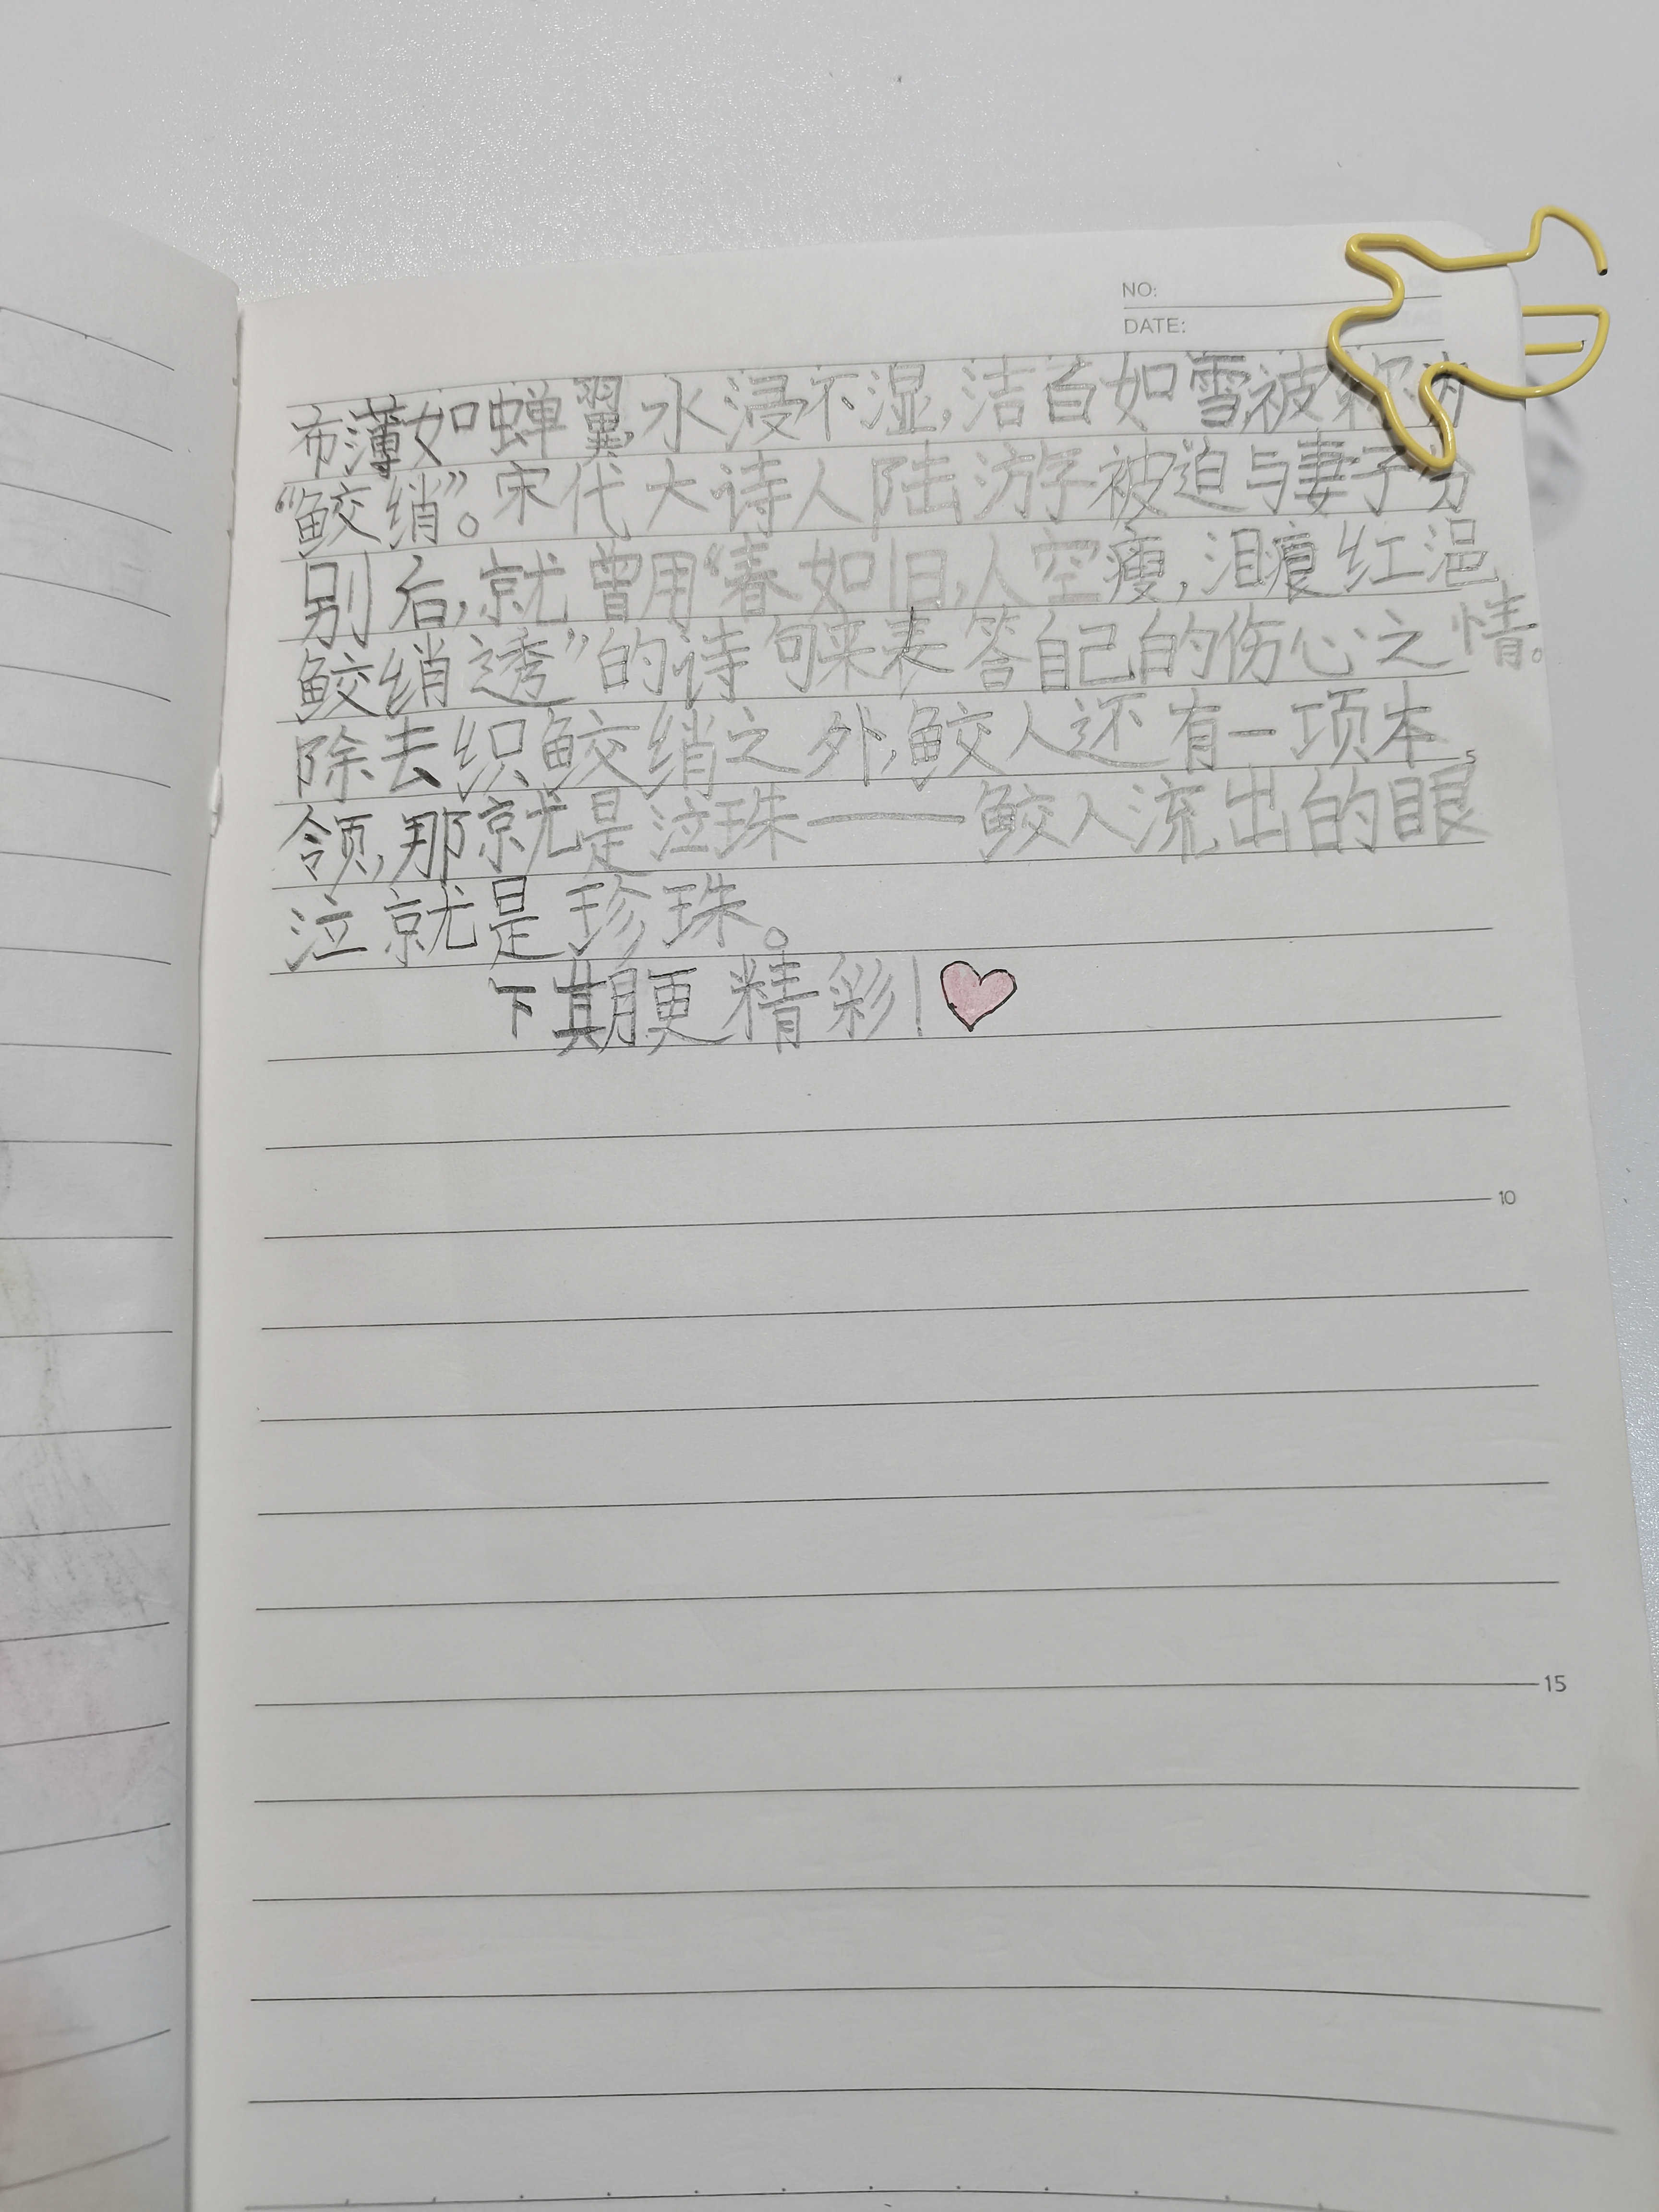 NO:
DATE:
布薄如蝉翼,水浸不湿,洁百如雪被称为
“鲛绡”。宋代大诗人陆游被迫与妻子分
别后,就曾用“春如旧,人空瘦,泪痕红浥
鲛绡透”的诗句来表答自己的伤心之情。
除去织鲛绡之外,鲛人还有一项本
5
领,那就是泣珠——鲛人流出的眼
泣就是珍珠。
下期更精彩!
10
15